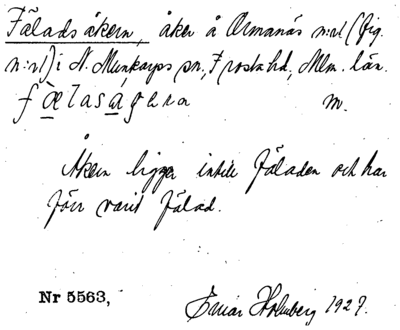 Fäladsåkern, åker å Ormanäs n:r1 (fig.
n:r1) i N. Munkarps sn, Frosta hd, Mlm. län.
fælaságɐrn m.
Åkern ligger intill fäladen och har
förr varit fälad.
Nr 5563, Einar Holmberg 1927.